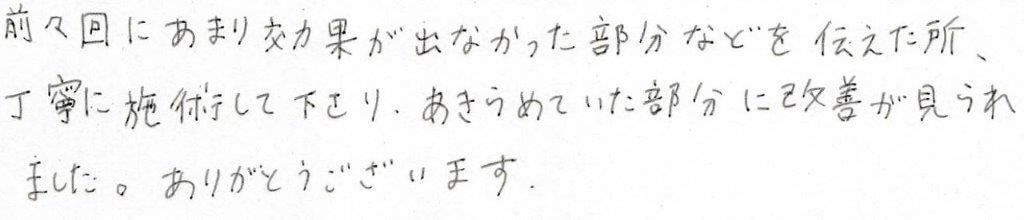 前々回にあまり効果が出なかった部分などを伝えた所、
丁寧に施術して下さり、あきらめていた部分に改善が見られ
ました。ありがとうございます.